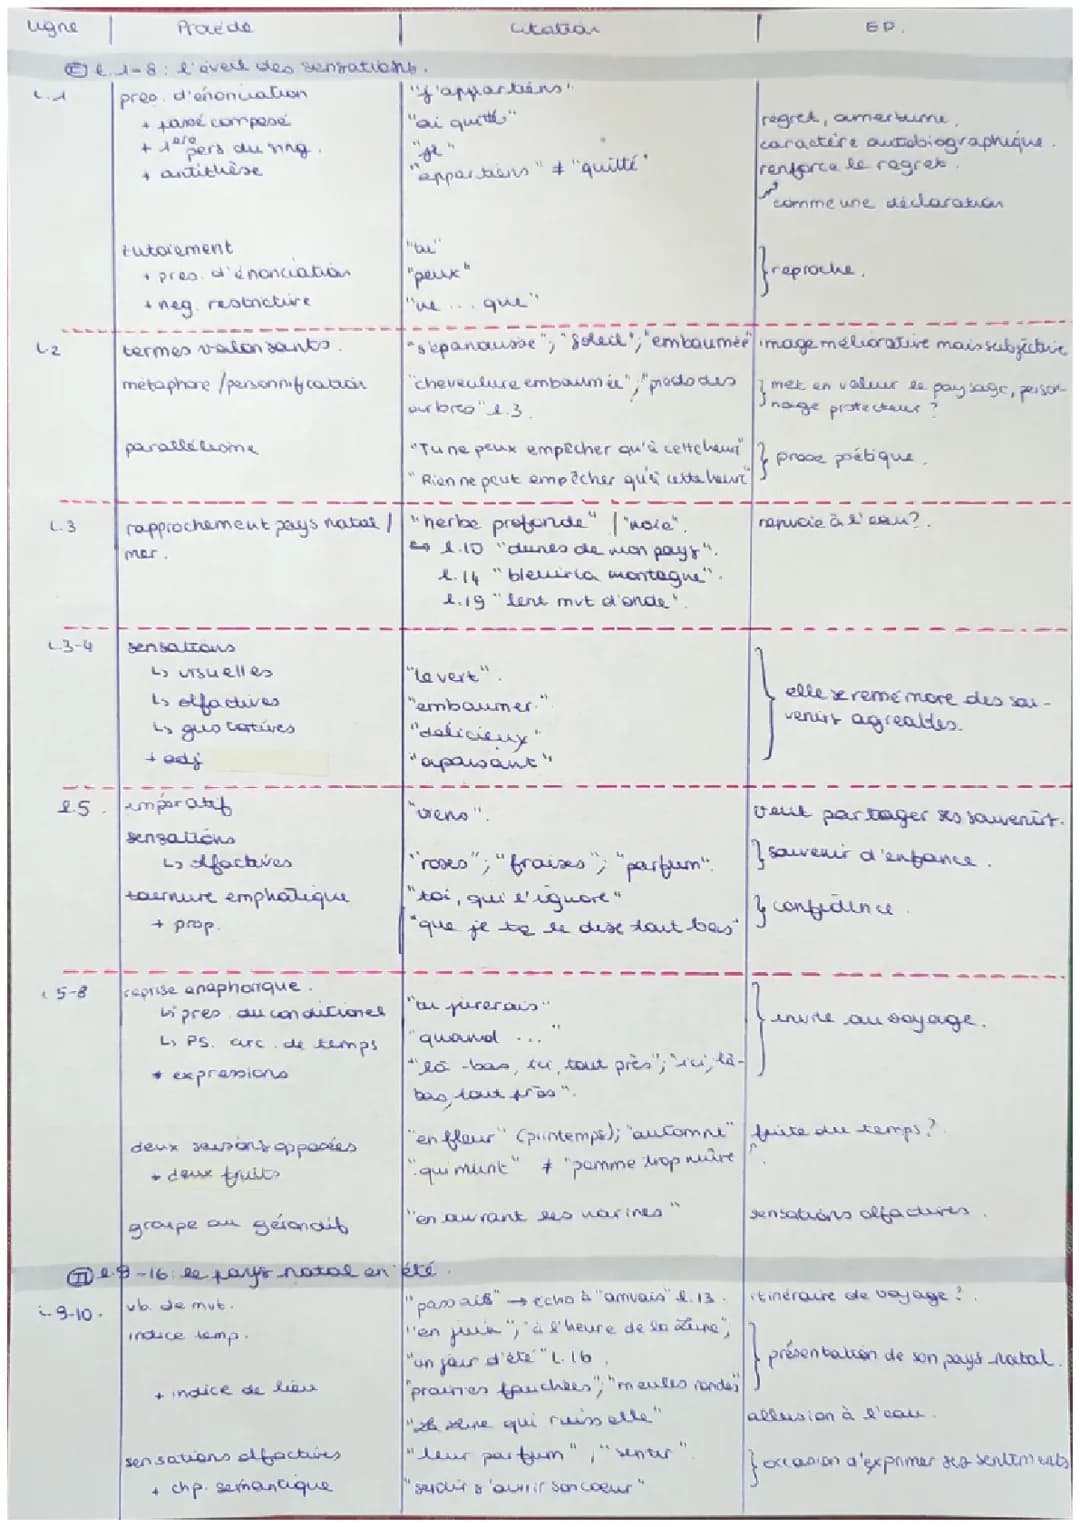 Ligne | Procédé | Citation | E.P.
Ⓘ l.1-8 : l'éveil des sensations.
L.1 pres. d'énonciation "j'appartiens"
+ passé composé "ai quitté" regret, amertume,
+ 1ère pers du sing. "je" caractère autobiographique.
+ antithèse "appartiens" ≠ "quitté" renforce le regret.
comme une déclaration
tutoiement "tu"
+ pres. d'énonciation "peux" } reproche.
+ neg. restrictive "ne ... que"
L.2 termes valorisants. "s'épanouisse"; "soleil"; "embaumée" image méliorative mais subjective
métaphore / personnification "chevelure embaumée"; "pieds des } met en valeur le paysage, person-
arbres" l.3. nage protecteur ?
parallélisme "Tu ne peux empêcher qu'à cette heure" } prose poétique.
"Rien ne peut empêcher qu'à cette heure"
L.3 rapprochement pays natal / "herbe profonde" / "noie". renvoie à l'eau ?.
mer. ↪ l.10 "dunes de mon pays".
l.14 "bleuir la montagne".
l.19 "lent mvt d'onde".
L.3-4 sensations
↳ visuelles "le vert".
↳ olfactives "embaumer" } elle se remémore des sou-
↳ gustatives "délicieux" venirs agréables.
+ adj "apaisant"
l.5. impératif "viens". veut partager ses souvenirs.
sensations
↳ olfactives "roses"; "fraises"; "parfum". } souvenir d'enfance.
tournure emphatique "toi, qui l'ignore" } confidence.
+ prop. "que je te le dise tout bas"
L.5-8 reprise anaphorique.
↳ pres. du conditionel "tu jurerais"
↳ PS. circ. de temps "quand ..." } invite au voyage.
+ expressions "là-bas, ici, tout près"; "ici, là-
bas, tout près".
deux saisons opposées "en fleur" (printemps); "automne" fuite du temps ?.
+ deux fruits "qui mûrit" ≠ "pomme trop mûre
groupe au gérondif "en ouvrant les narines" sensations olfactives.
Ⅱ l.9-16 : le pays natal en été.
L.9-10. vb. de mvt. "passais" → écho à "arrivais" l.13. itinéraire de voyage ?.
indice temp. "en juin"; "à l'heure de la Lune";
"un jour d'été" L.16. } présentation de son pays natal.
+ indice de lieu "prairies fauchées"; "meules rondes"
qui ruisselle" allusion à l'eau.
sensations olfactives "leur parfum", "sentir". } occasion d'exprimer ses sentiments
+ chp. sémantique s'ouvrir son coeur"